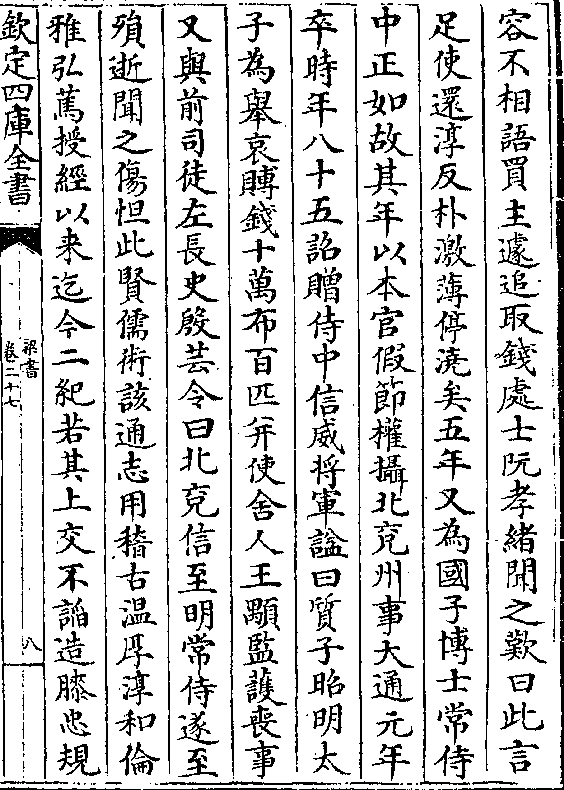 容不相語買主遽追取錢處士阮孝緒聞之歎曰此言
足使還淳反朴激薄停澆矣五年又為國子博士常侍
中正如故其年以本官假節權攝北兖州事大通元年
卒時年八十五詔贈侍中信威将軍諡曰質子昭明太
子為舉哀賻錢十萬布百匹并使舍人王顒監護喪事
又與前司徒左長史殷芸令曰北兖信至明常侍遂至
殞逝聞之傷怛此賢儒術該通志用稽古温厚淳和倫
雅弘蔿授經以来迄今二紀若其上交不謟造膝忠規
欽定四庫全書
梁書
卷二十七
八